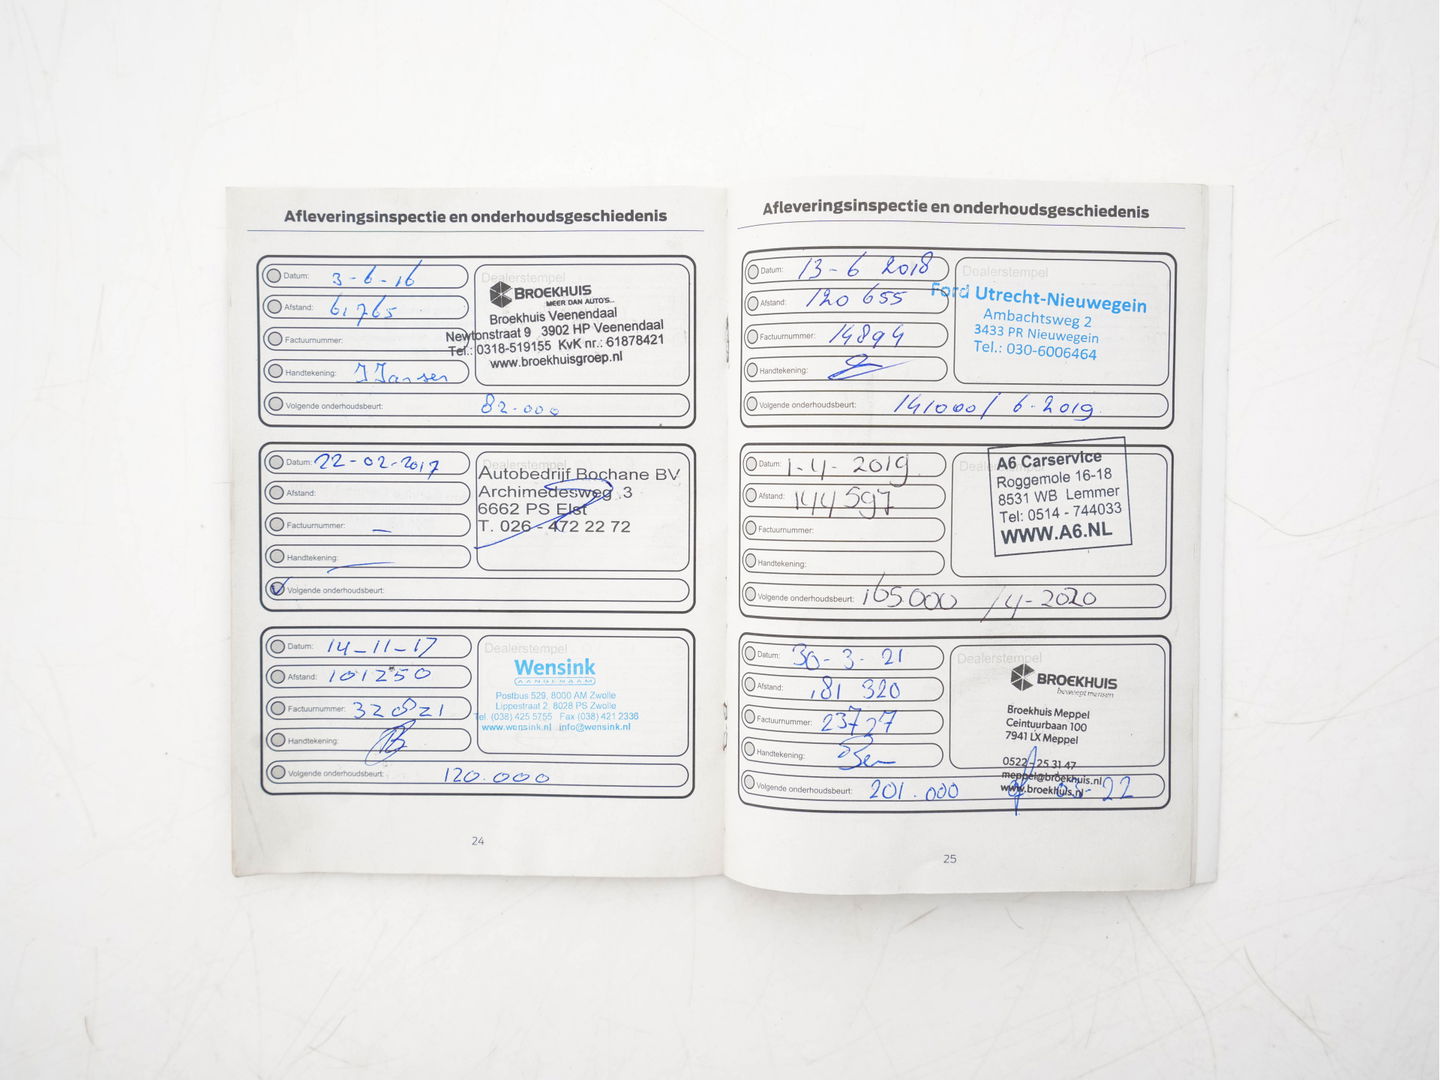 Afleveringsinspectie en onderhoudsgeschiedenis
Datum: 3-6-16
Afstand: 61,765
Factuurnummer:
Handtekening: JJansen
Volgende onderhoudsbeurt: 82.000
Dealerstempel
BROEKHUIS
MEER DAN AUTO'S...
Broekhuis Veenendaal
Newtonstraat 9 3902 HP Veenendaal
Tel.: 0318-519155 KvK nr.: 61878421
www.broekhuisgroep.nl
Datum: 22-02-2017
Afstand:
Factuurnummer: -
Handtekening:
Volgende onderhoudsbeurt:
Dealerstempel
Autobedrijf Bochane BV
Archimedesweg 3
6662 PS Elst
T. 026 - 472 22 72
Datum: 14-11-17
Afstand: 101250
Factuurnummer: 32821
Handtekening:
Volgende onderhoudsbeurt: 120.000
Dealerstempel
Wensink
AANGENAAM
Postbus 529, 8000 AM Zwolle
Lippestraat 2, 8028 PS Zwolle
Tel. (038) 425 5755 Fax (038) 421 2336
www.wensink.nl info@wensink.nl
24
Afleveringsinspectie en onderhoudsgeschiedenis
Datum: 13-6 2018
Afstand: 120 655
Factuurnummer: 14894
Handtekening:
Volgende onderhoudsbeurt: 141000/ 6-2019
Dealerstempel
Ford Utrecht-Nieuwegein
Ambachtsweg 2
3433 PR Nieuwegein
Tel.: 030-6006464
Datum: 1-4-2019
Afstand: 144597
Factuurnummer:
Handtekening:
Volgende onderhoudsbeurt: 165.000 /4-2020
A6 Carservice
Roggemole 16-18
8531 WB Lemmer
Tel: 0514 - 744033
WWW.A6.NL
Datum: 30-3-21
Afstand: 181 320
Factuurnummer: 23727
Handtekening:
Volgende onderhoudsbeurt: 201.000 of 03-22
Dealerstempel
BROEKHUIS
beweegt mensen
Broekhuis Meppel
Ceintuurbaan 100
7941 LX Meppel
0522 - 25 31 47
meppel@broekhuis.nl
www.broekhuis.nl
25